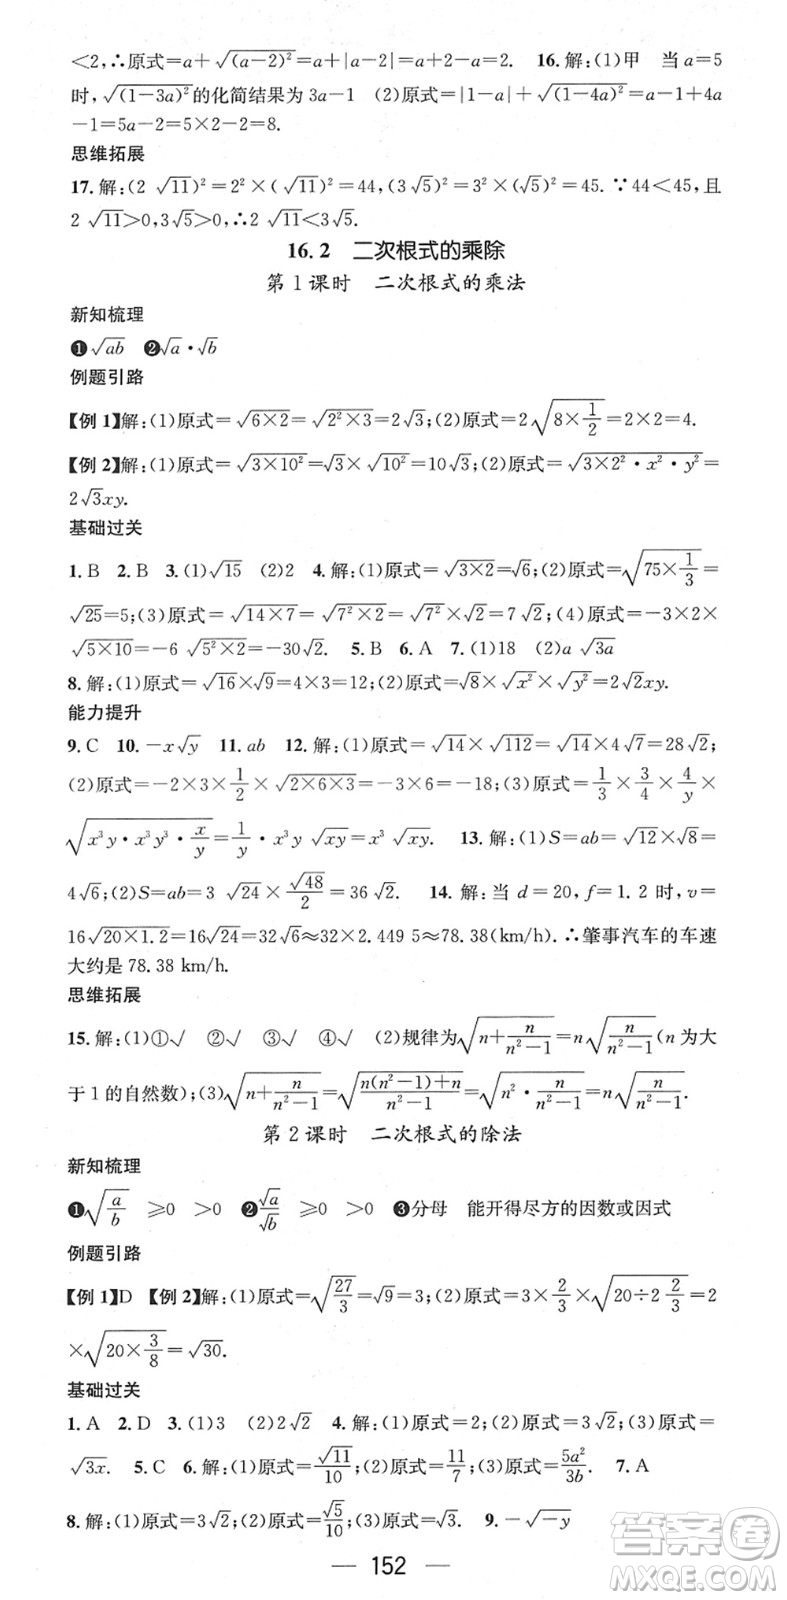 <2,∴原式=a+√(a-2)²=a+|a-2|=a+2-a=2. 16.解:(1)甲 当a=5
时,√(1-3a)²的化简结果为3a-1 (2)原式=|1-a|+√(1-4a)²=a-1+4a
-1=5a-2=5×2-2=8.
思维拓展
17.解:(2√11)²=2²×(√11)²=44,(3√5)²=3²×(√5)²=45.∵44<45,且
2√11>0,3√5>0,∴2√11<3√5.
16.2 二次根式的乘除
第1课时 二次根式的乘法
新知梳理
❶√ab ❷√a·√b
例题引路
【例1】解:(1)原式=√(6×2)=√(2²×3)=2√3;(2)原式=2√(8×1/2)=2×2=4.
【例2】解:(1)原式=√(3×10²)=√3×√10²=10√3;(2)原式=√(3×2²·x²·y²)=
2√3xy.
基础过关
1.B 2.B 3.(1)√15 (2)2 4.解:(1)原式=√(3×2)=√6;(2)原式=√(75×1/3)=
√25=5;(3)原式=√(14×7)=√(7²×2)=√7²×√2=7√2;(4)原式=-3×2×
√(5×10)=-6√(5²×2)=-30√2. 5.B 6.A 7.(1)18 (2)a√3a
8.解:(1)原式=√16×√9=4×3=12;(2)原式=√8×√x²×√y²=2√2xy.
能力提升
9.C 10.-x√y 11.ab 12.解:(1)原式=√14×√112=√14×4√7=28√2;
(2)原式=-2×3×1/2×√(2×6×3)=-3×6=-18;(3)原式=1/3×3/4×4/y×
√(x³y·x³y³·x/y)=1/y·x³y√xy=x³√xy. 13.解:(1)S=ab=√12×√8=
4√6;(2)S=ab=3√24×√48/2=36√2. 14.解:当d=20,f=1.2时,v=
16√(20×1.2)=16√24=32√6≈32×2.4495≈78.38(km/h).∴肇事汽车的车速
大约是78.38 km/h.
思维拓展
15.解:(1)①√ ②√ ③√ ④√ (2)规律为√(n+n/(n²-1))=n√(n/(n²-1))(n为大
于1的自然数);(3)√(n+n/(n²-1))=√((n(n²-1)+n)/(n²-1))=√(n²·n/(n²-1))=n√(n/(n²-1)).
第2课时 二次根式的除法
新知梳理
❶√(a/b) ≥0 >0 ❷√a/√b ≥0 >0 ❸分母 能开得尽方的因数或因式
例题引路
【例1】D 【例2】解:(1)原式=√(27/3)=√9=3;(2)原式=3×2/3×√(20÷2 2/3)=2
×√(20×3/8)=√30.
基础过关
1.A 2.D 3.(1)3 (2)2√2 4.解:(1)原式=2;(2)原式=3√2;(3)原式=
√3x. 5.C 6.解:(1)原式=√11/10;(2)原式=11/7;(3)原式=5a²/3b. 7.A
8.解:(1)原式=3√2;(2)原式=√5/10;(3)原式=√3. 9.-√-y
— 152 —
答案圈
MXQE.COM